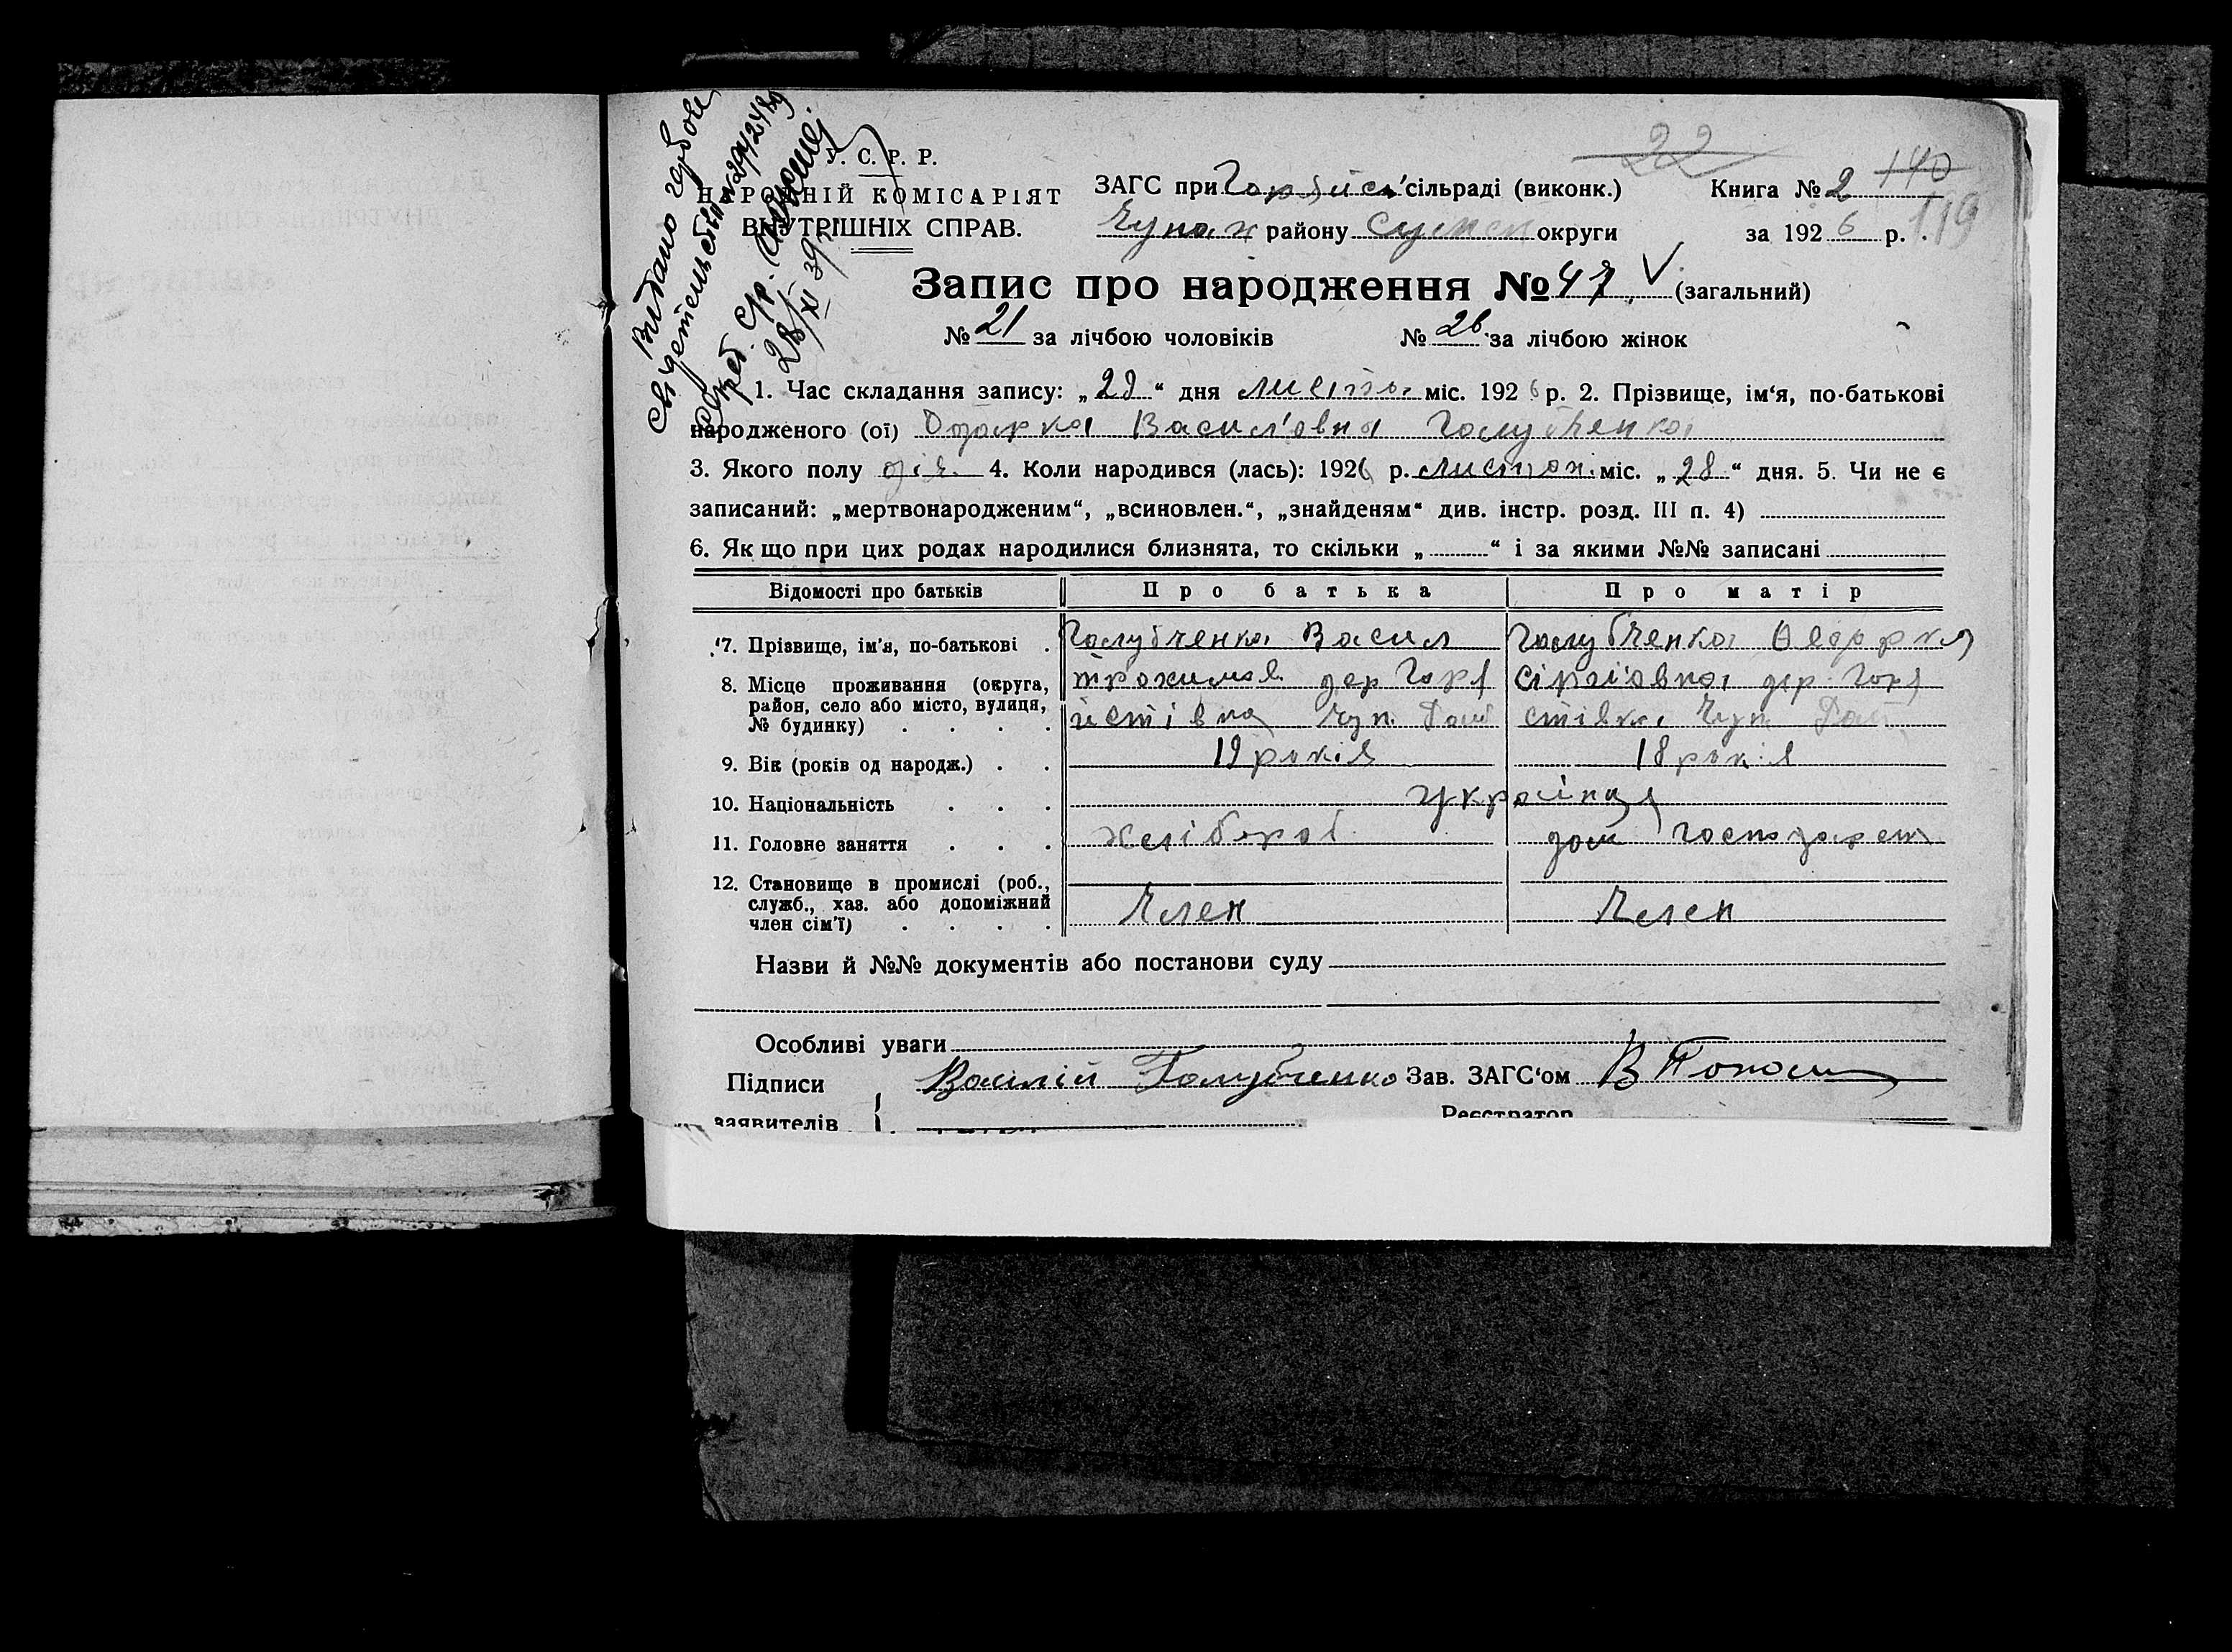 Видано гербове
свідетельство
28/XI 39 р.
У. С. Р. Р.
НАРОДНІЙ КОМІСАРІЯТ
ВНУТРІШНІХ СПРАВ.
22
ЗАГС при сільраді (виконк.) Книга № 2 140
Чупах району Сумськ округи за 192 6 р. 119
Запис про народження № 47 (загальний)
№ 21 за лічбою чоловіків № 26 за лічбою жінок
1. Час складання запису: „ 29 “ дня листоп міс. 192 6 р. 2. Прізвище, ім‘я, по-батькові
народженого (ої) Одарка Васил'овна Голубченко
3. Якого полу дів. 4. Коли народився (лась): 1926 р. листоп. міс. „ 28 “ дня. 5. Чи не є
записаний: „мертвонародженим“, „всиновлен.“, „знайденям“ див. інстр. розд. III п. 4)
6. Як що при цих родах народилися близнята, то скільки „ “ і за якими №№ записані
Відомості про батьків Про батька Про матір
7. Прізвище, ім'я, по-батькові . Голубченко Васил Голубченко Федорка
8. Місце проживання (округа, район, село або місто, вулиця, № будинку) . . . . трохимов. дер Горя йстівка Чуп. Рай Сіргі'овна дер. Горя стівка Чуп. Рай
9. Вік (років од народж.) . . 19 років 18 років
10. Національність . . . українці
11. Головне заняття . . . хлібороб дом господарст
12. Становище в промислі (роб., служб., хаз. або допоміжний член сім'ї) . . . . Член Член
Назви й №№ документів або постанови суду
Особливі уваги
Підписи Василій Голубченко Зав. ЗАГС‘ом В
заявителів Реєстратор